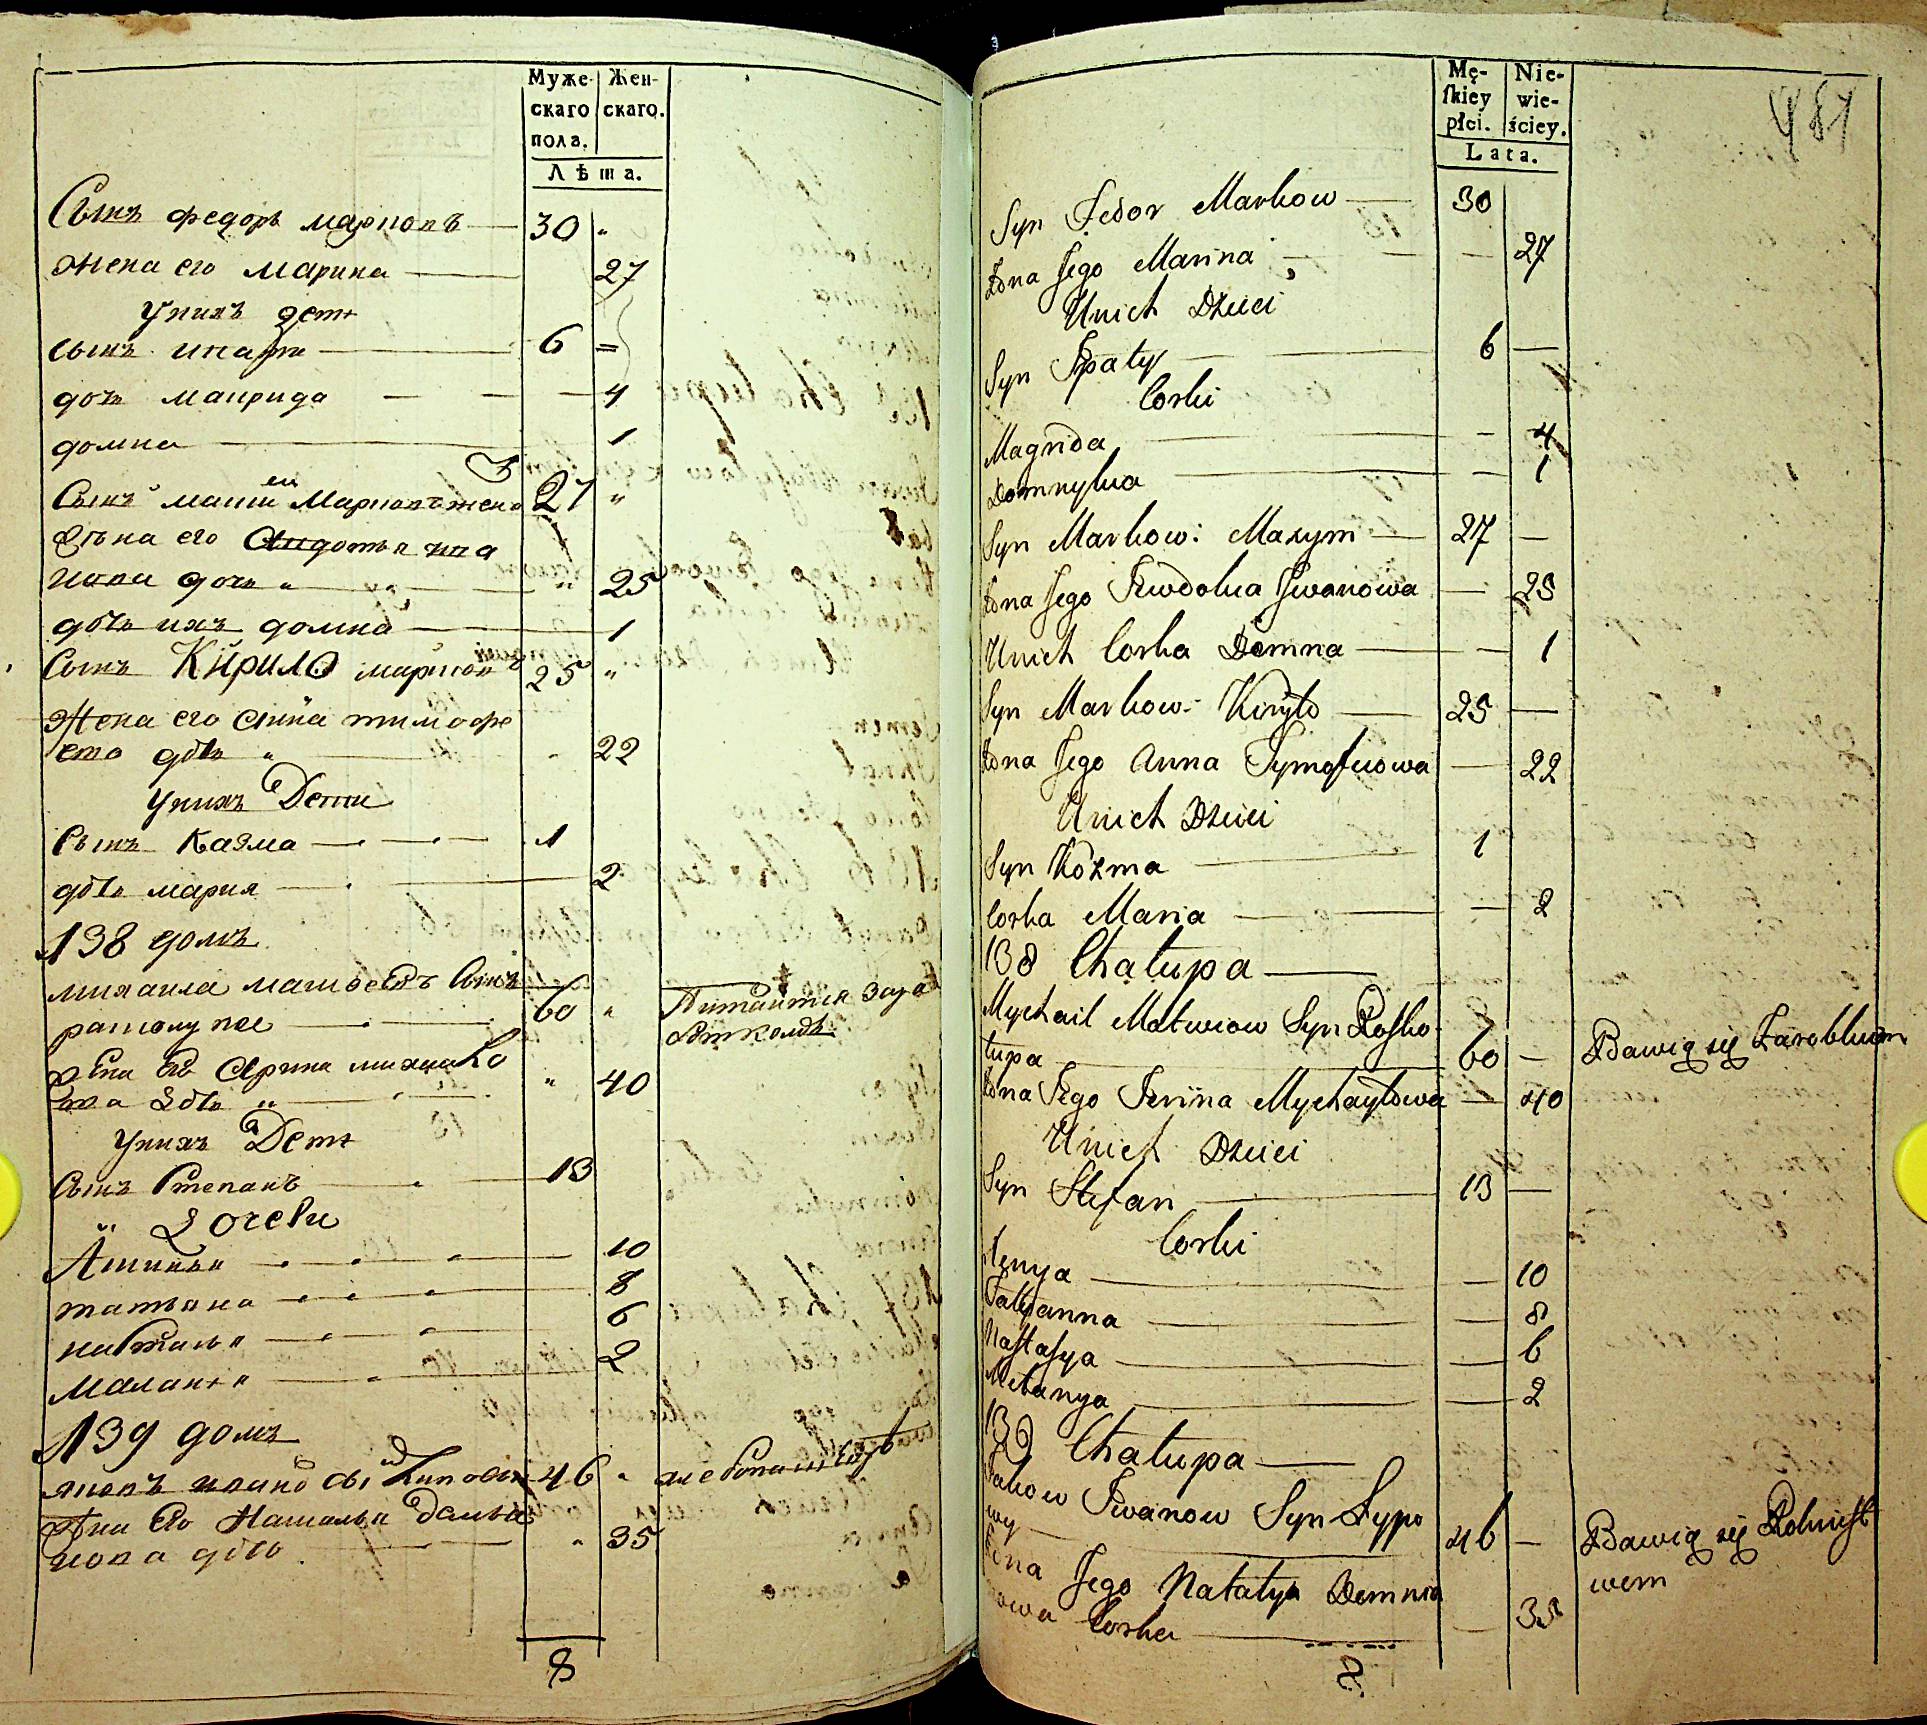 Муже-
скаго
пола.
Жен-
скаго.
Лѣта.
Сынъ федоръ марковъ 30 "
жена его марина 27
Унихъ дети
сынъ ипати 6 =
дочь магрида 4
домна 1
Сынъ Марковъ 27 "
его Авдотья ива
нова дочь " " 25
дочь ихъ домна 1
Сынъ Кирило марковъ 25 "
Жена его анна тимофе
ева дочь " 22
Унихъ Дети
Сынъ Казма 1
дочь мария 2
138 домъ
михаила Сынъ 60 " Питаитса
жена его Арина михаило
ва дочь " " 40
Унихъ Дети
Сынъ Степанъ 13
" Дочери
10
татьяна 8
настасья 6
маланья 2
139 домъ
46 "
его Наталья
нова дочь " 35
8
Mę-
ſkiey
płci.
Nie-
wie-
ściey.
Lata.
481
Syn Fedor Markow 30
Żona Jego Marina 27
Unich Dzieci
Syn Ipaty 6 —
Corki
Magrida 4
Domnylua 1
Syn Markow: Maxym 27 —
Żona Jego Iwdokia Iwanowa 25
Unich Corka Domna 1
Syn Markow: Kiryło 25 —
Żona Jego Anna Tymofiiowa 22
Unich Dzieci
Syn Kozma 1
Corka Maria 2
138 Chałupa
Mychail Matwiow Syn Roſko
łupa 60 — Bawią się Zarobkiem
Żona Jego Irina Mychayłowa 40
Unich Dzieci
Syn Stefan 13 —
Corki
10
Tatyanna 8
Naſtaſya 6
Mełanya 2
139 Chałupa
Jakow Iwanow Syn Lypo
wy 46 — Bawią się Rolnict
wem
Żona Jego Natalya Demnia
nowa Corka 35
8